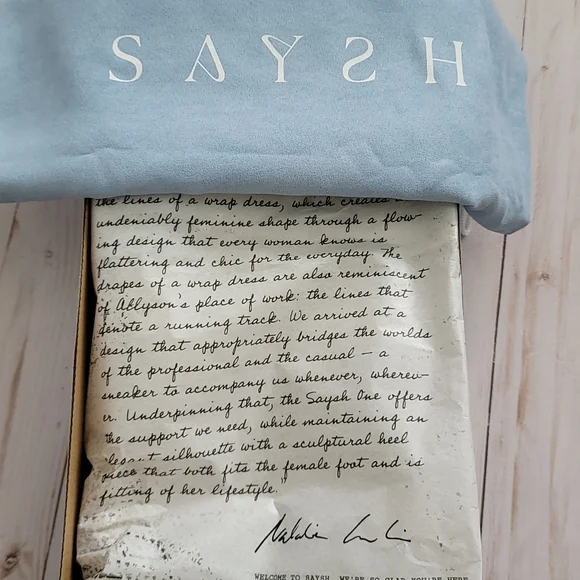 SAYSH
the lines of a wrap dress, which creates
undeniably feminine shape through a flow-
ing design that every woman knows is
flattering and chic for the everyday. The
drapes of a wrap dress are also reminiscent
of Allyson's place of work: the lines that
denote a running track. We arrived at a
design that appropriately bridges the worlds
of the professional and the casual — a
sneaker to accompany us whenever, wherev-
er. Underpinning that, the Saysh One offers
the support we need, while maintaining an
elegant silhouette with a sculptural heel
piece that both fits the female foot and is
fitting of her lifestyle."
WELCOME TO SAYSH. WE'RE SO GLAD YOU'RE HERE